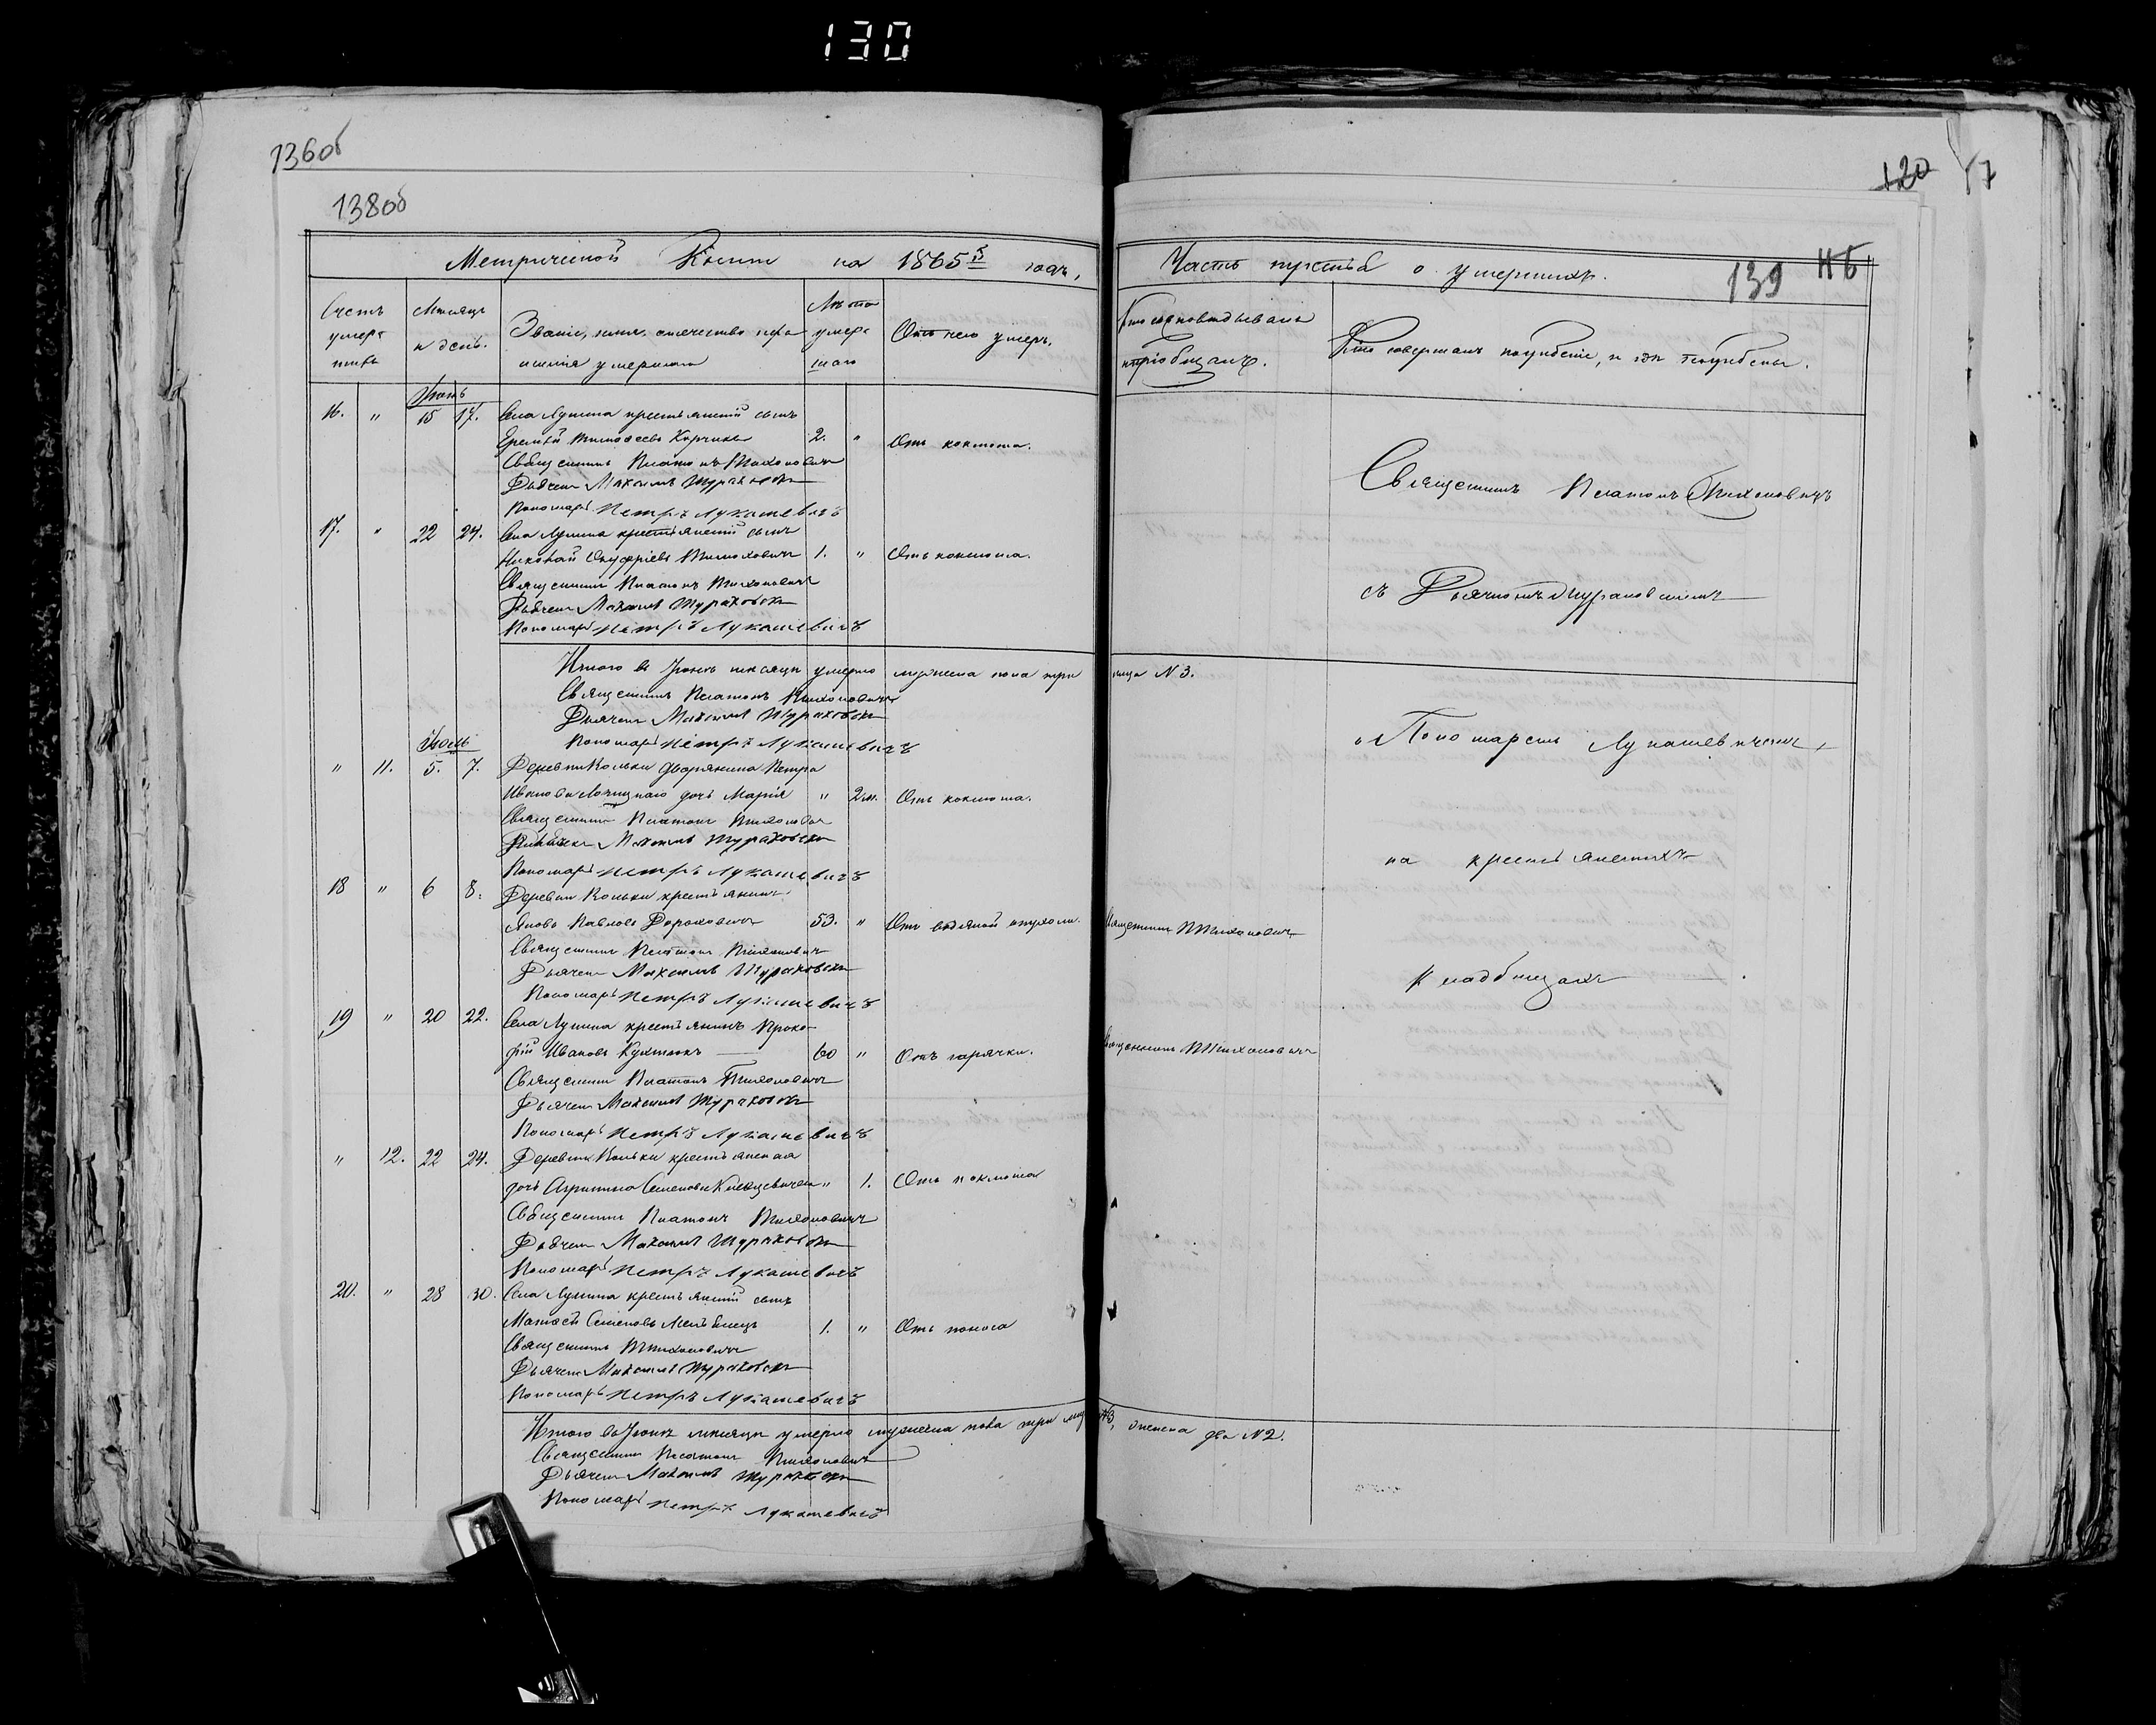 130
136об
138об
120
139
Метрической Книги на 1865й годъ,
Часть третья о умершихъ.
Счетъ умерших
Мѣсяцъ и день.
Званіе, имя, отчество и фамилія умершаго
Лѣта умершаго
Отъ чего умеръ.
Кто исповѣдывалъ и пріобщалъ.
Кто совершалъ погребеніе, и гдѣ погребены.
Іюнь
16. " 15 17. Села Лунина крестьянскій сынъ
Еремѣй Тимофеевъ 2. " Отъ коклюша.
Священникъ Платонъ Тихоновичъ
Дьячекъ Максимъ Жураковски
Пономарь Петръ Лукашевичъ
17. " 22 24. Села Лунина крестьянскій сынъ
Николай Онуфріевъ 1. " Отъ коклюша.
Священникъ Платонъ Тихоновичъ
Дьячекъ Максимъ Жураковски
Пономарь Петръ Лукашевичъ
Итого въ Іюнѣ мѣсяцѣ умерло мужеска пола три лица N 3.
Священникъ Платонъ Тихоновичъ
Дьячекъ Максимъ Жураковски
Пономарь Петръ Лукашевичъ
Іюль
" 11. 5. 7. Деревни Вольки дворянина Петра
Иванова дочь Марія " 2 м. Отъ коклюша.
Священникъ Платонъ Тихонович
Дьячекъ Максимъ Жураковски
Пономарь Петръ Лукашевичъ
18 " 6 8. Деревни Вольки крестьянинъ
Яковъ Павловъ Дорохович 53. " Отъ водяной опухоли. Священникъ П Тихоновичъ
Священникъ Платонъ Тихоновичъ
Дьячекъ Максимъ Жураковски
Пономарь Петръ Лукашевичъ
19 " 20 22. Села Лунина крестьянинъ Проко-
фій Ивановъ 60 " Отъ горячки. Священникъ П Тихоновичъ
Священникъ Платонъ Тихоновичъ
Дьячекъ Максимъ Жураковски
Пономарь Петръ Лукашевичъ
" 12. 22 24. Деревни Вольки крестьянская
дочь Агрипина Семенова " 1. Отъ коклюша
Священникъ Платонъ Тихоновичъ
Дьячекъ Максимъ Жураковски
Пономарь Петръ Лукашевичъ
20. " 28 30. Села Лунина крестьянскій сынъ
Матѳей Семеновъ 1. " Отъ поноса
Священникъ П Тихоновичъ
Дьячекъ Максимъ Жураковски
Пономарь Петръ Лукашевичъ
Итого въ мѣсяцѣ умерло мужеска пола три лица N3, женска два N 2.
Священникъ Платонъ Тихоновичъ
Дьячекъ Максимъ Жураковски
Пономарь Петръ Лукашевичъ
Священникъ Платонъ Тихоновичъ
съ Дьячкомъ Жураковскимъ
и Пономаремъ Лукашевичемъ,
на крестьянскихъ
кладбищахъ